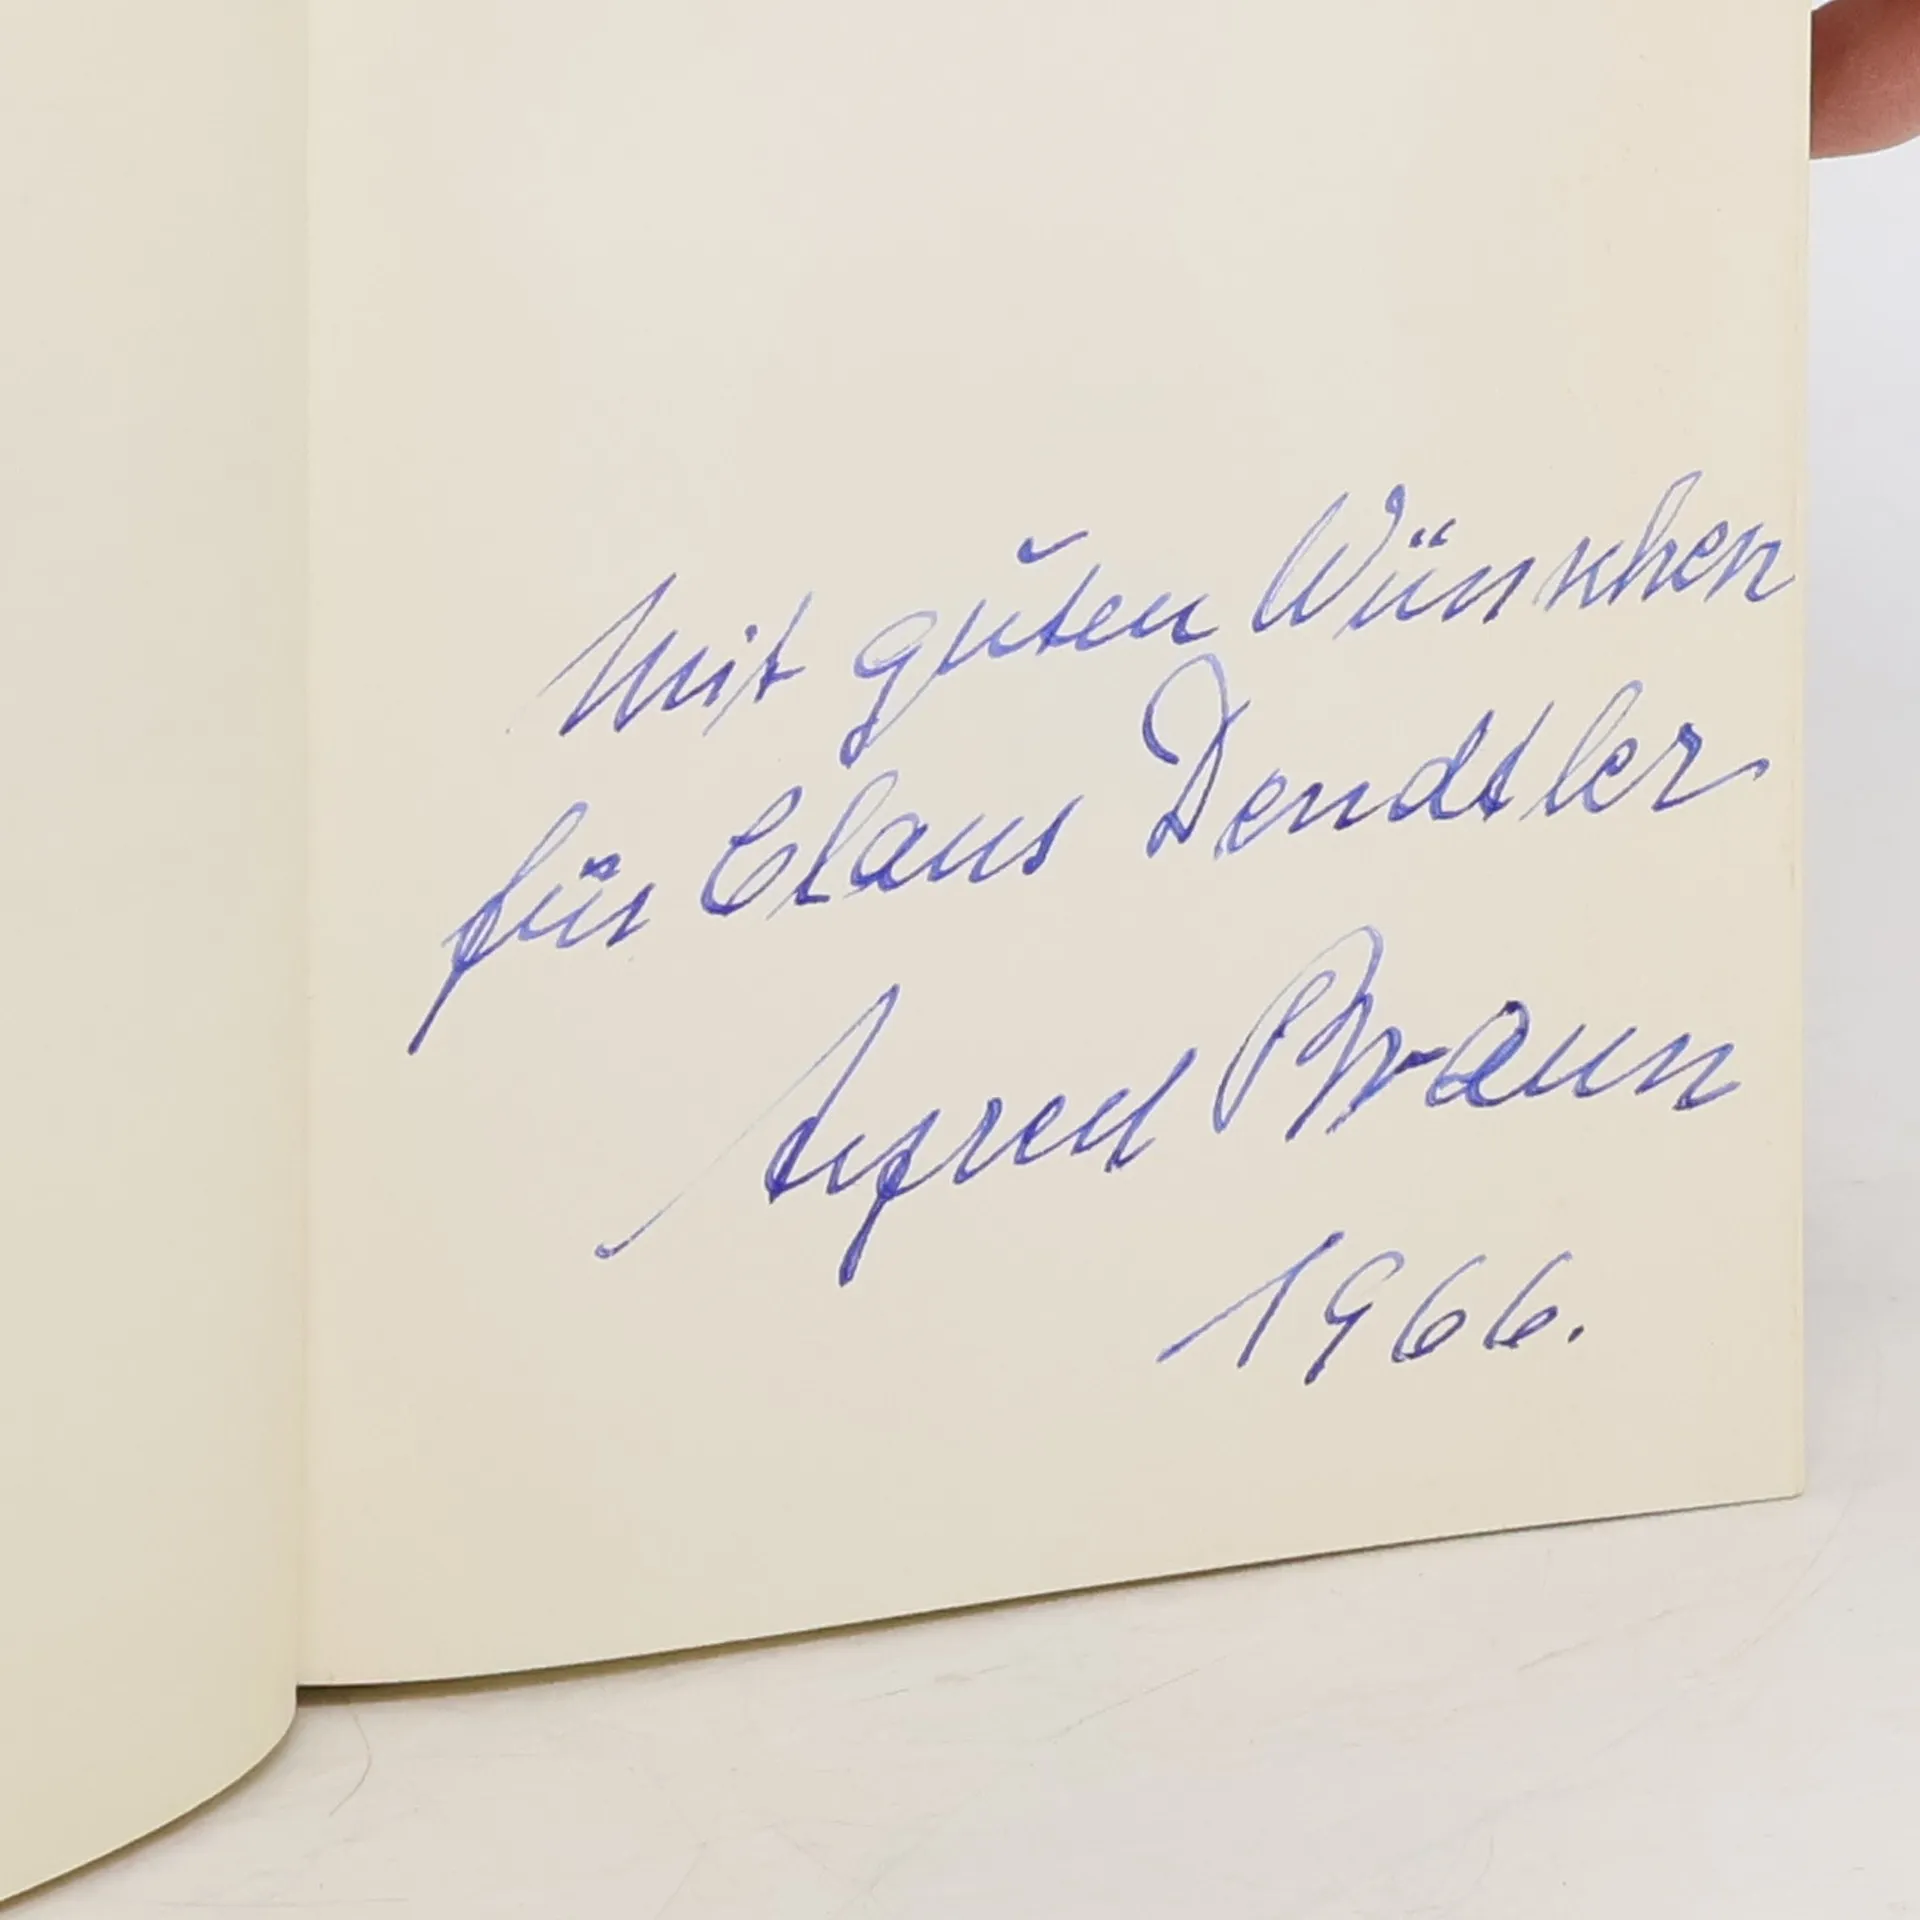 Mit guten Wünschen
für Claus Dendtler
Alfred Braun
1966.